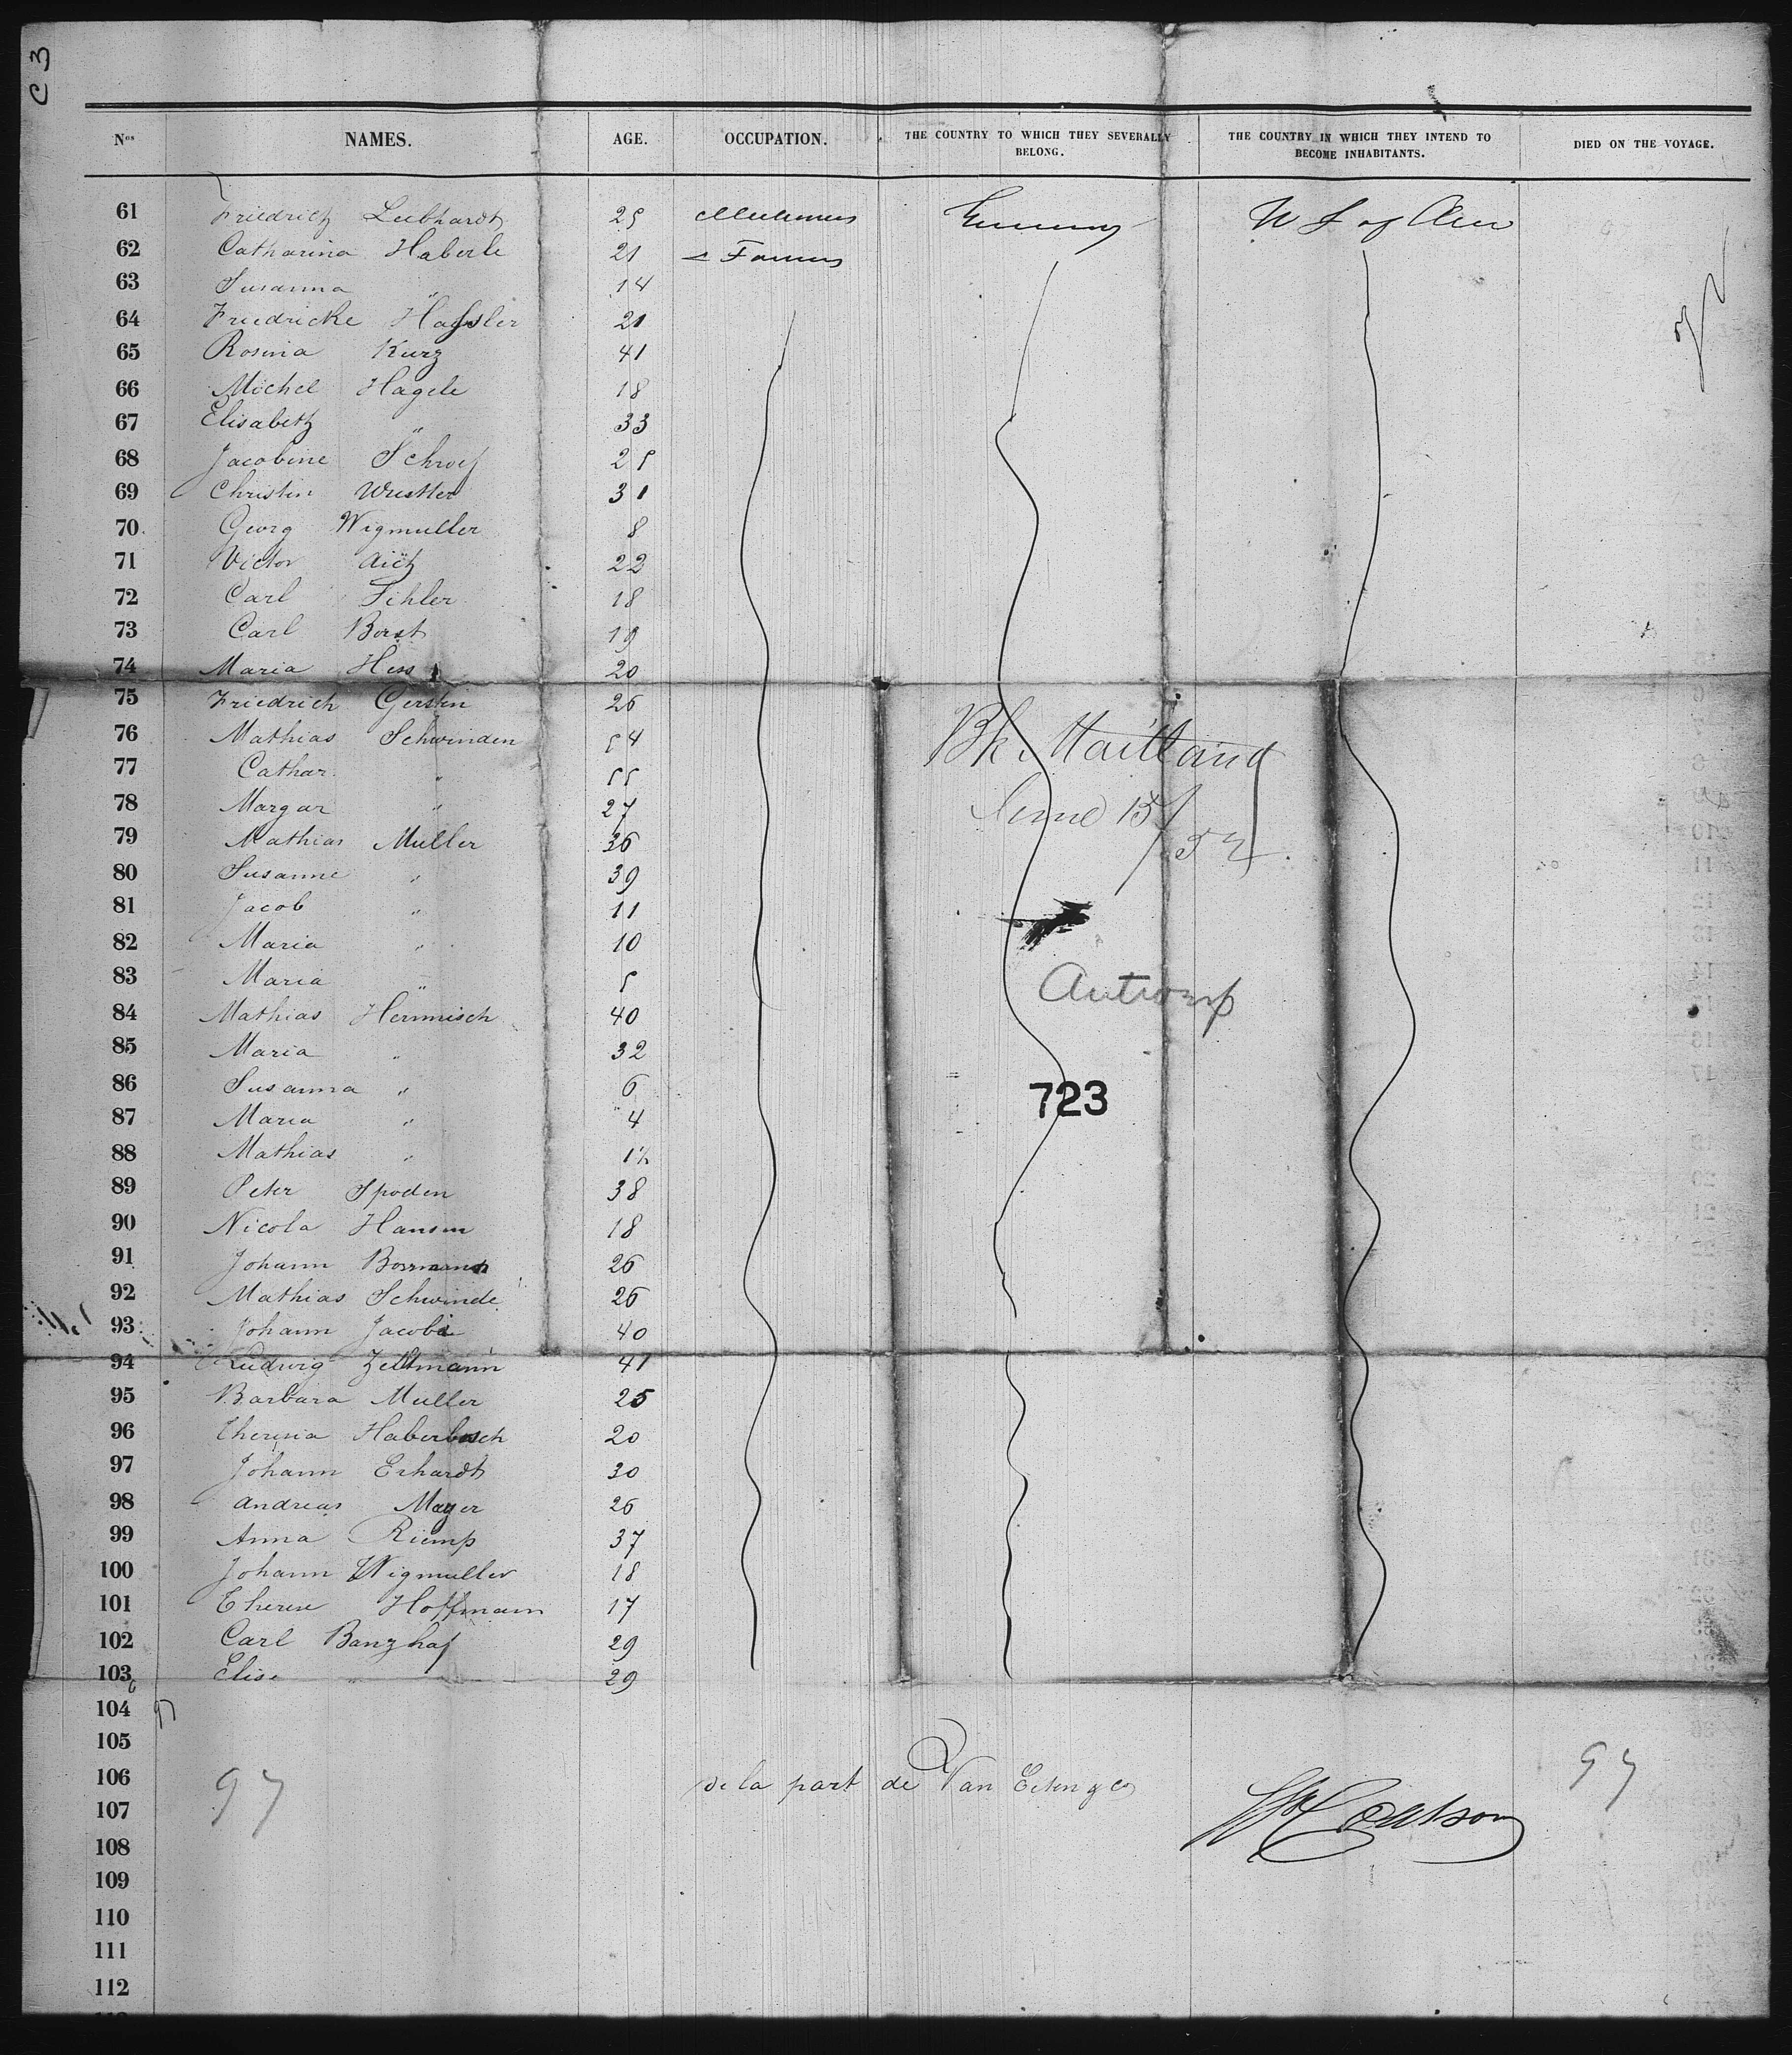 C 3
Nos NAMES. AGE. OCCUPATION. THE COUNTRY TO WHICH THEY SEVERALLY BELONG. THE COUNTRY IN WHICH THEY INTEND TO BECOME INHABITANTS. DIED ON THE VOYAGE.
61 Friedrich Leibhardt 25 Germany U S of Am
62 Catharina Haberle 21 & Farmers
63 Susanna " 14
64 Friedricke Hassler 21
65 Rosina Kurz 41
66 Michel Hagele 18
67 Elisabeth " 33
68 Jacobine 25
69 Christin 31
70 Georg Wigmuller 8
71 Victor Aich 22
72 Carl Fihler 18
73 Carl Borst 19
74 Maria Hess 20
75 Friedrich Gerstin 26
76 Mathias Schwinden 54
77 Cathar " 55
78 Margar " 27
79 Mathias Muller 36
80 Susanne " 39
81 Jacob " 11
82 Maria " 10
83 Maria " 5
84 Mathias Hermisch 40
85 Maria " 32
86 Susanna " 6
87 Maria " 4
88 Mathias " 1½
89 Peter Spoden 38
90 Nicola Hansen 18
91 Johann 26
92 Mathias Schwinde 26
93 Johann Jacobi 40
94 Ludwig Zeltmann 41
95 Barbara Muller 25
96 Theresia Haberbosch 20
97 Johann Erhardt 30
98 Andreas Mayer 26
99 Anna Riemp 37
100 Johann Wigmuller 18
101 Therese Hoffmann 17
102 Carl Banzhaf 29
103 Elise " 29
Bk Maitland
June 15/52
Antwerp
723
104
105
106 97 de la part de Van Eeten & Co 97
107
108
109
110
111
112